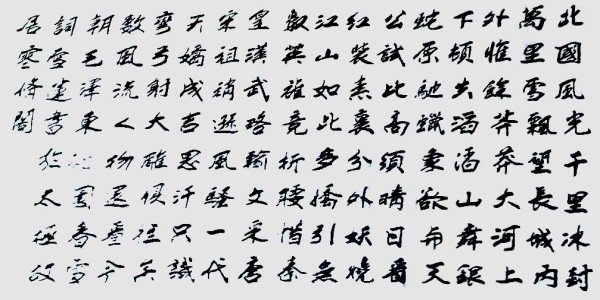 北國風光千里冰封
萬里雪飄望長城内
外惟餘莽莽大河上
下頓失滔滔山舞銀
蛇原馳蠟象欲与天
公試比高須晴日看
紅裝素裹分外妖嬈
江山如此多嬌引無
數英雄競折腰惜秦
皇漢武略輸文采唐
宋祖稍遜風騷一代
天嬌成吉思汗只識
彎弓射大雕俱往矣
數風流人物還看今
朝毛澤東沁園春雪
詞雪蓮書於太極故
居寒脩閣